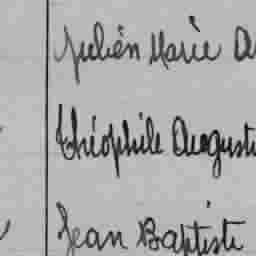 Julien Marie
Théophile August
Jean Baptiste